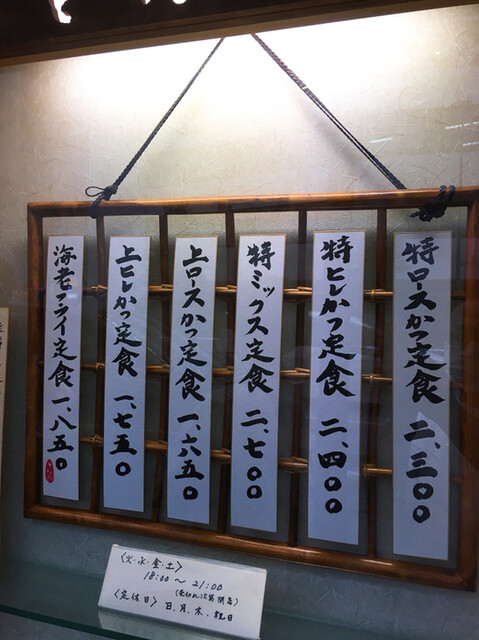 特ロースかつ定食 二、三〇〇
特ヒレかつ定食 二、四〇〇
特ミックス定食 二、七〇〇
上ロースかつ定食 一、六五〇
上ヒレかつ定食 一、七五〇
海老フライ定食 一、八五〇
〈火・水・金・土〉
18:00～21:00
(売切れ次第閉店)
〈定休日〉日、月、木、祝日